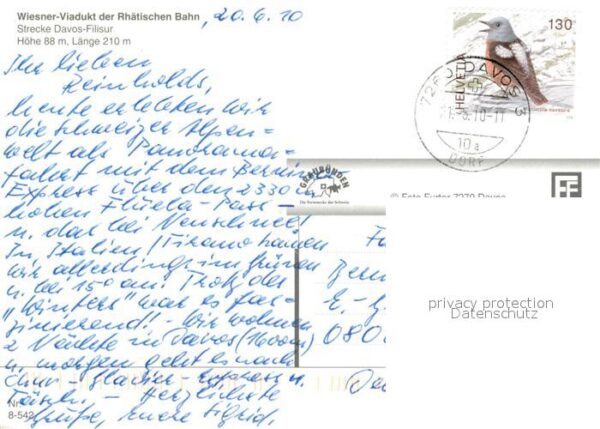 Wiesner-Viadukt der Rhätischen Bahn
Strecke Davos-Filisur
Höhe 88 m, Länge 210 m
, 20.6.10
Ihr lieben
Reinholds,
heute erlebten wir
die Schweizer Alpen-
welt als Panorama-
fahrt mit dem Bernin
Express über den 2330 m
hohen Flüela-Pass -
u. das bei Neuschnee!
In Italien / Tirano kamen
wir allerdings im grünen
u. bei 15° an! Trotz des
"Winters" war es fas-
zinierend! - Wir wohnen
2 Nächte in Davos (1600m)
u. morgen geht es nach
Chur - Glacier Express u.
Täsch. - Herzlichste
Grüße, eure Sigrid,
Nr.
8-542
130
HELVETIA
7260 DAVOS 3
10-11
10a
DORF
GRAUBÜNDEN
Die Ferienecke der Schweiz
© Foto Furter 7270 Davos
Fa
E.-
080
De
privacy protection
Datenschutz